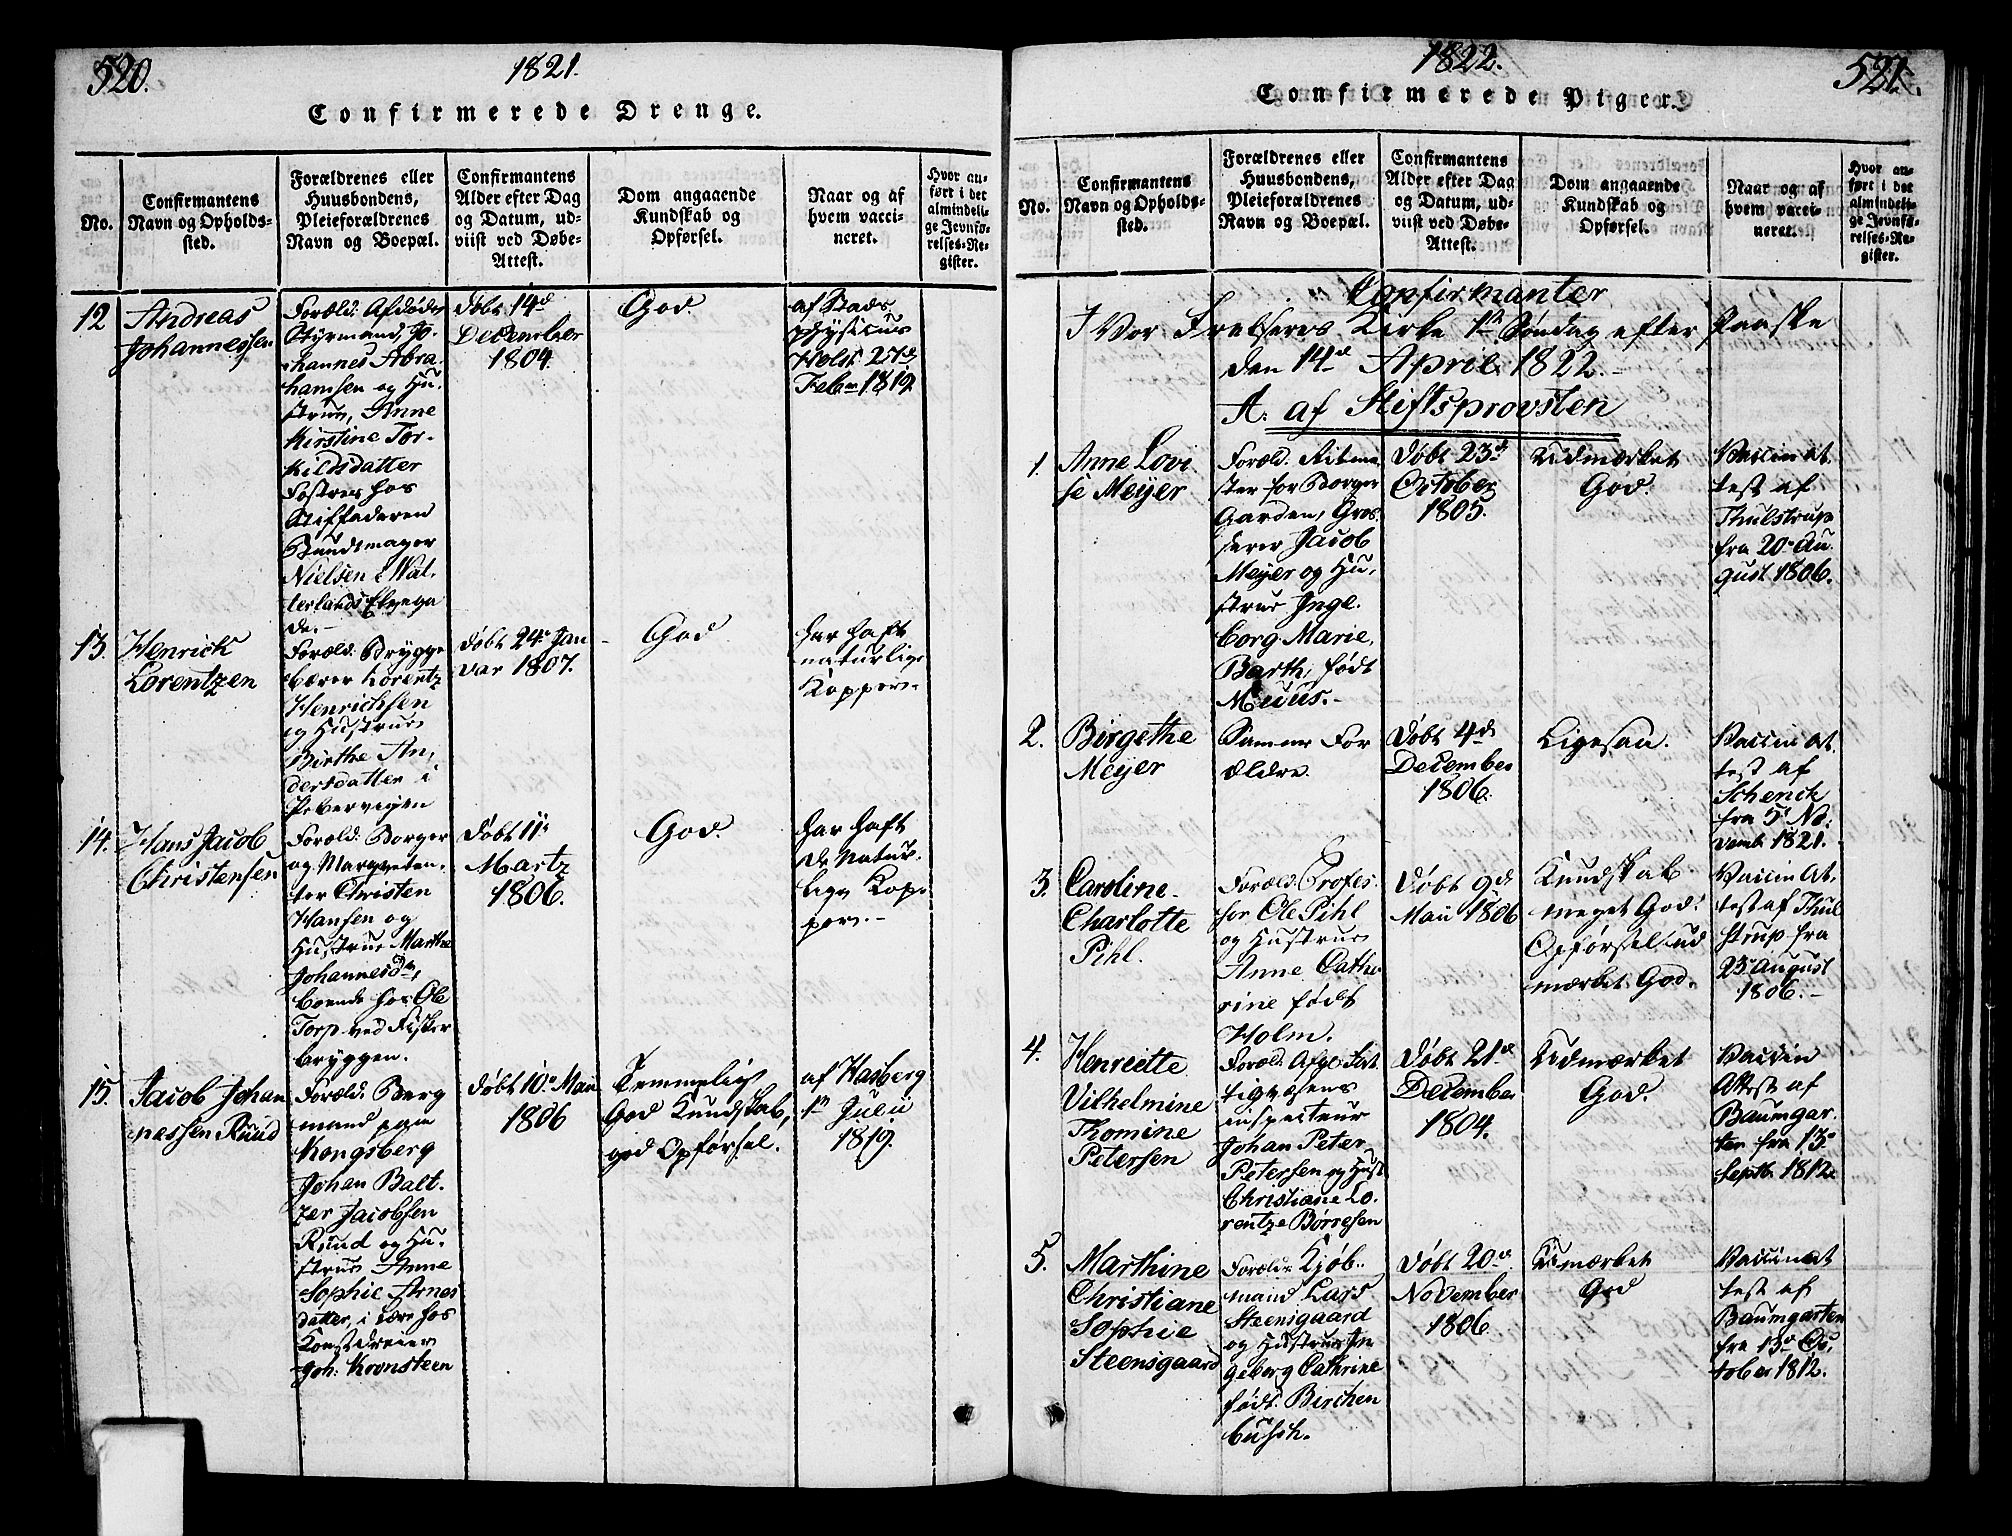 520.
1821.
Confirmerede Drenge.
No.
Confirmantens
Navn og Opholds-
sted.
Forældrenes eller
Huusbondens,
Pleieforældrenes
Navn og Boepæl.
Confirmantens
Alder efter Dag
og Datum, ud-
viist ved Døbe-
Attest.
Dom angaaende
Kundskab og
Opførsel.
Naar og af
hvem vacci-
neret.
Hvor an-
ført i det
almindeli-
ge Jevnfø-
relses-Re-
gister.
12
Andreas
Johannessen
Foræld: Afdøde
Styrmand, Jo-
hannes Abra-
hamsen og Hu-
strue, Anne
Kirstine Tor-
kildsdatter
Fostres hos
Stiffaderen
Bundtmager
Nielsen i Wat-
terlands Elvega
de.
Døbt 14d
December
1804.
God.
af Stads
physicus
Holst 27d
Febr 1819.
13.
Henrick
Lorentzen
Foræld: Brygge
bærer Lorentz
Henrichsen
og Hustrue
Birthe An,
dersdatter i
Pebervigen
Døbt 24. Jan
var 1807.
God
har haft
naturlige
Kopper.
14.
Hans Jacob
Christensen
Foræld: Borger
og Marqveten-
ter Christen
Hansen og
Hustrue Marthe
Johannesdr,
boende hos Ole
Torp ved Fisker
bryggen.
Døbt 11.
Martz
1806.
God.
har haft
de natur-
lige Kop-
per.
15.
Jacob Johan
nessen Ruud
Foræld: Berg
mand paa
Kongsberg
Johan Balt-
zer Jacobsen
Ruud og Hu-
strue Anne
Sophie Arnes
datter, i lære hos
Kunstdreier
Joh: Kronsteen
Døbt 10. Mai
1806
Temmelig
God Kundskab,
god Opførsel.
af Hasberg
1n Julii
1819.
1822.
521.
Confirmerede Piger.
No.
Confirmantens
Navn og Opholds-
sted.
Forældrenes eller
Huusbondens,
Pleieforældrenes
Navn og Boepæl.
Confirmantens
Alder efter Dag
og Datum, ud-
viist ved Døbe-
Attest.
Dom angaaende
Kundskab og
Opførsel.
Naar og af
hvem vacci-
neret.
Hvor an-
ført i det
almindeli-
ge Jevnfø-
relses-Re-
gister.
Confirmanter
I Vor Frelsers Kirke 1ste Søndag efter Paaske
den 14d April 1822.
A. af Stiftsprovsten
1.
Anne Lovi
se Meyer
Foræld: Ritme
ster for Borger
Garden, Gros-
serer Jacob
Meyer og Hu-
strue Inge-
borg Marie,
Barth, født
Meius.
Døbt 23d
October
1805.
Udmærket
God.
Vaccin At
test af
Thulstrup
fra 20. Au
gust 1806.
2.
Birgethe
Meyer
Samme For
ældre.
Døbt 4d
December
1806.
Ligesaa.
Vaccin At.
test af
Schenck
fra 5. No
vemb: 1821.
3.
Caroline
Charlotte
Pihl.
Foræld: Profes
sor Ole Pihl
og Hustrue
Anne Catha
rine født
Holm.
Døbt 9d
Maii 1806
Kundskab
meget God.
Opførsel ud
mærket God.
Vaccin At,
test af Thul
strup fra
23. August
1806.
4.
Henriette
Vilhelmine
Thomine
Petersen
Foræld: Afg: Fat
tigvæsens
inspecteur
Johan Peter
Petersen og Hust
Christiane Lo,
rentze Børresen
Døbt 21d
December
1804.
Udmærket
God.
Vaccin
Attest af
Baumgar.
ten fra 13
Septb. 1812.
5.
Marthine
Christiane
Sophie
Steensgaard
Foræld: Kjøb-
mand Lars
Steensgaard
og Hustrue In
geborg Cathrine
født Birchen
busch.
Døbt 20d
November
1806.
Udmærket
God
Vaccin at
test af
Baumgarten
fra 13. Oc,
tober 1812.